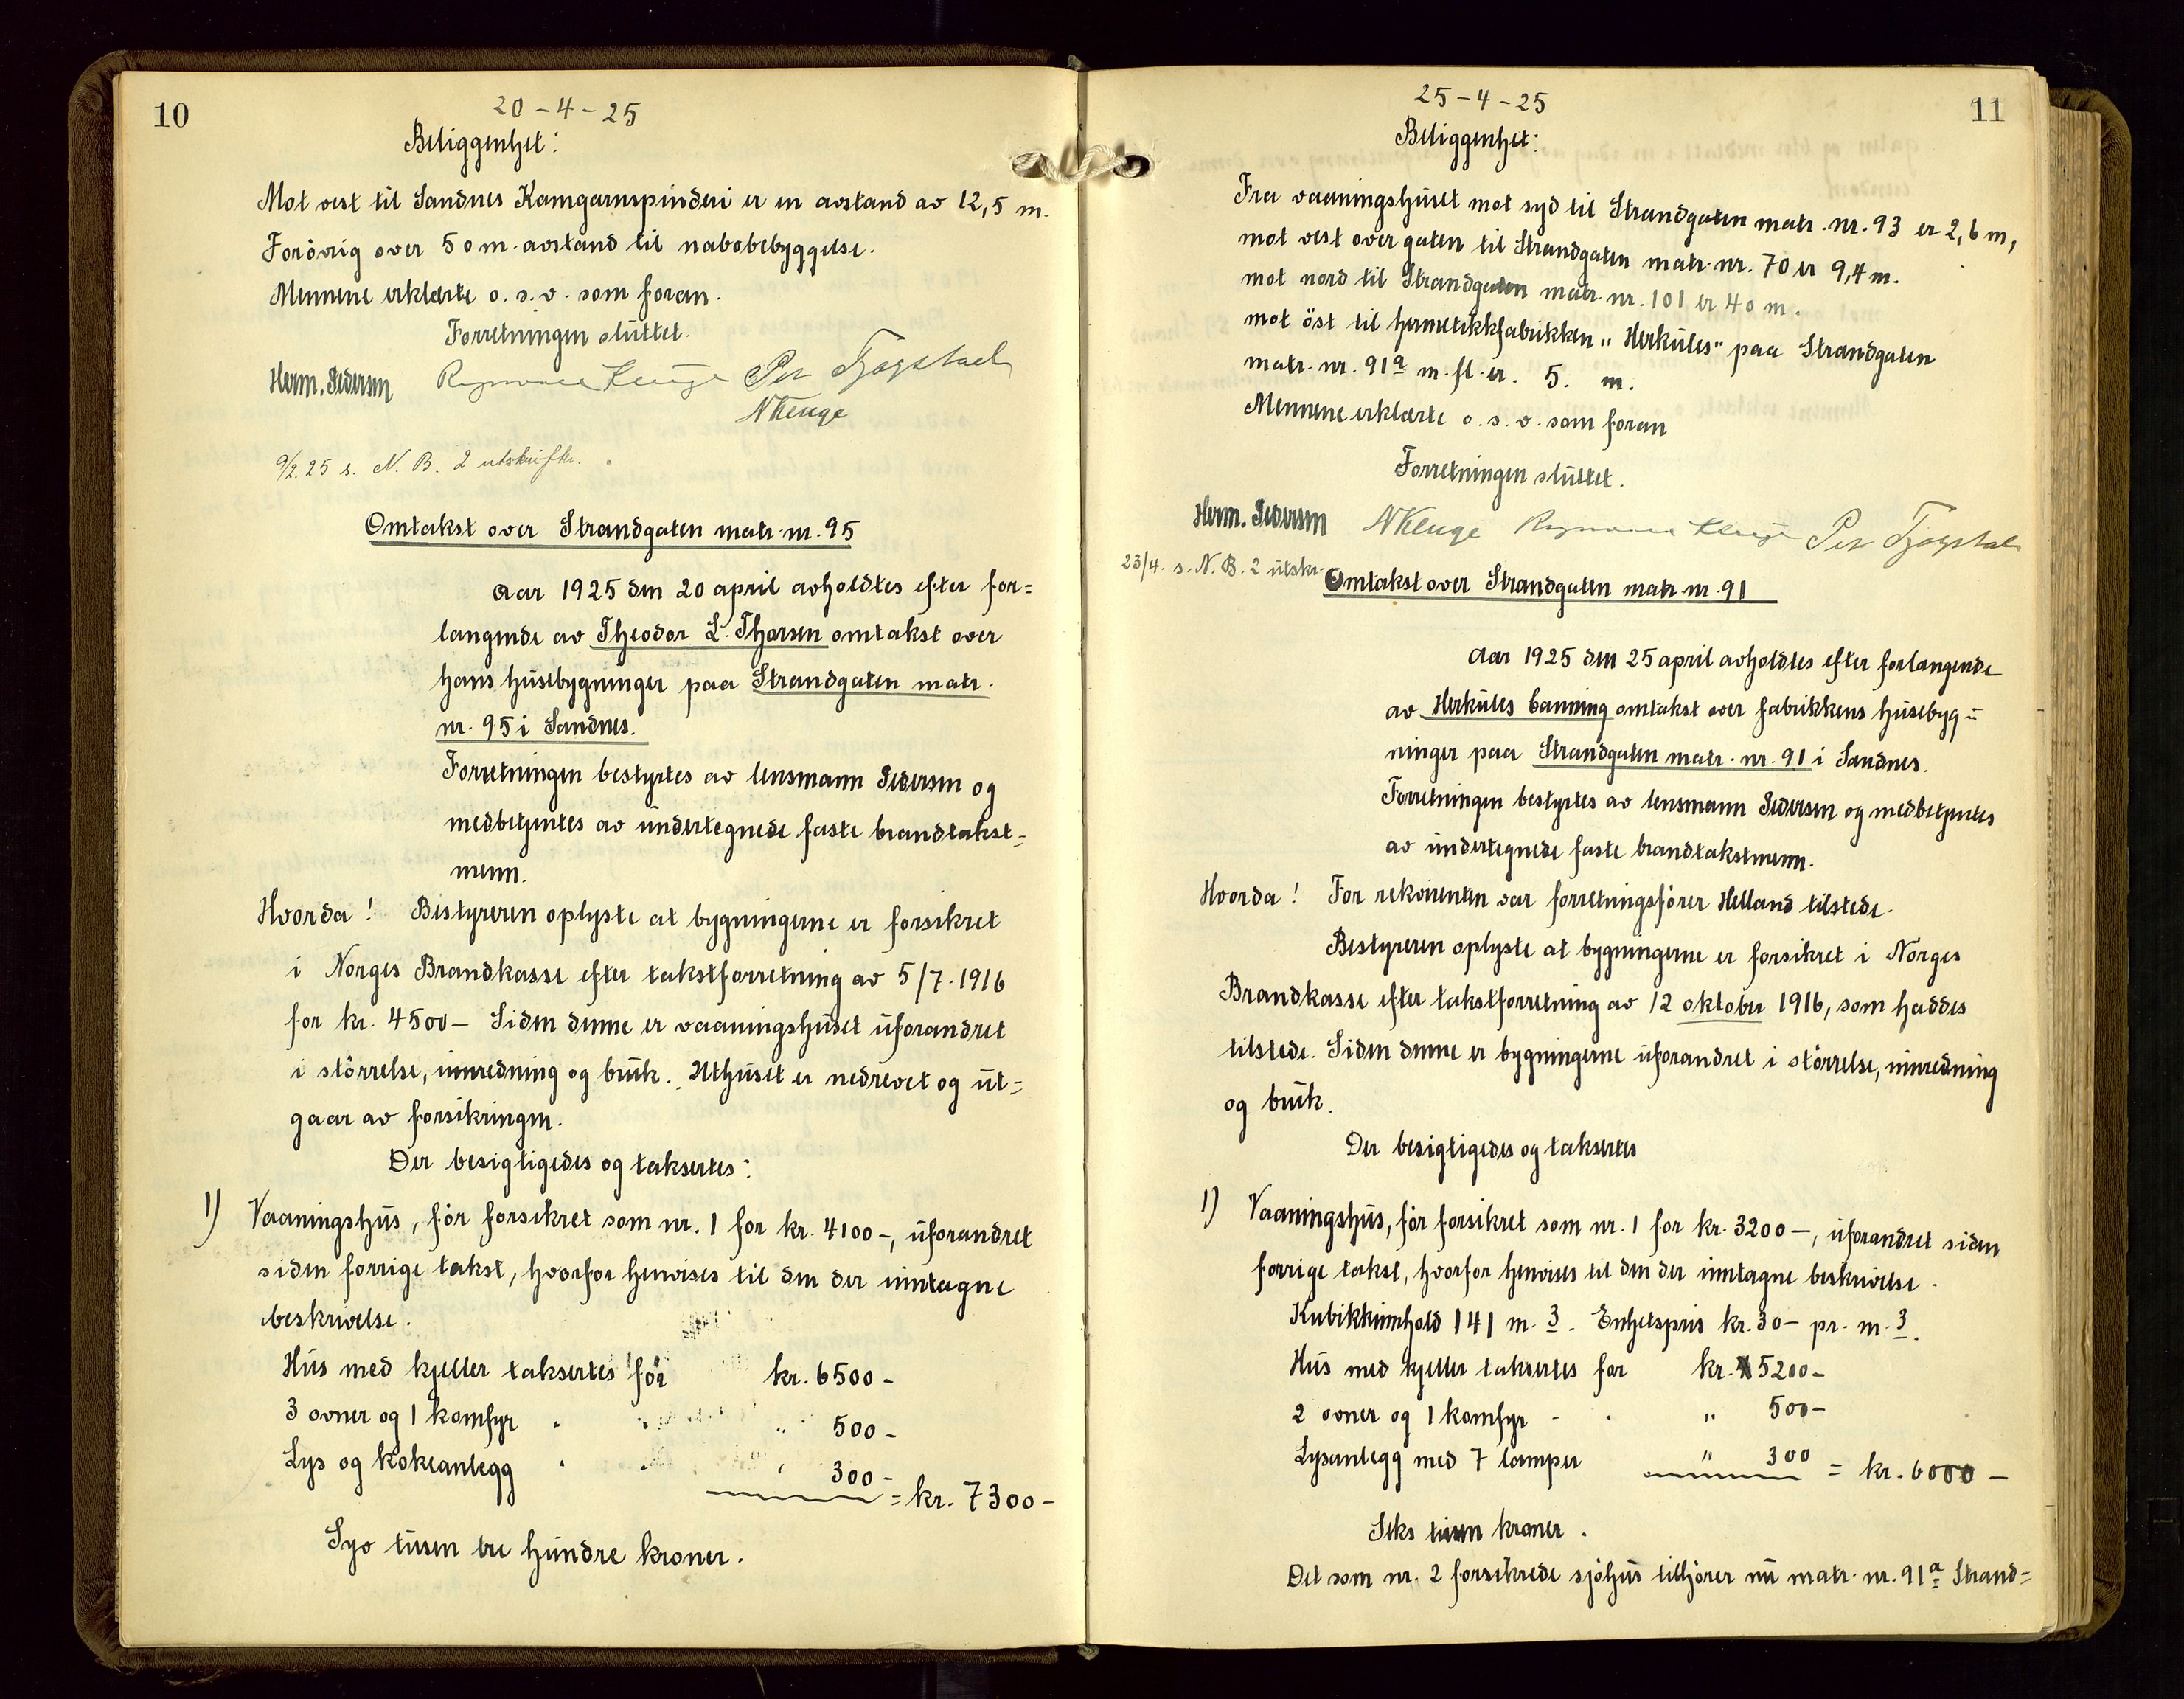 10
20-4-25
Beliggenhet:
Mot vest til Sandnes Kamgarnspinderi er en avstand av 12,5 m.
Forövrig over 50 m. avstand til nabobebyggelse.
Mennene erklærte o. s. v. som foran.
Forretningen sluttet.
Herm. Pedersen Rasmus Kluge Per Tjågstad
N Kluge
9/2.25 s. N. B. 2 utskrifter.
Omtakst over Strandgaten matr. nr. 95
Aar 1925 den 20 april avholdtes efter for=
langende av Theodor L. Thorsen omtakst over
hans husebygninger paa Strandgaten matr.
nr. 95 i Sandnes.
Forretningen bestyrtes av lensmann Pedersen og
medbetjentes av undertegnede faste brandtakst=
menn.
Hvorda! Bestyreren oplyste at bygningerne er forsikret
i Norges Brandkasse efter takstforretning av 5/7. 1916
for kr. 4500- Siden denne er vaaningshuset uforandret
i störrelse, innredning og bruk. Uthuset er nedrevet og ut=
gaar av forsikringen.
Der besigtigedes og taksertes:
1) Vaaningshus, för forsikret som nr. 1 for kr. 4100-, uforandret
siden forrige takst, hvorfor henvises til den der inntagne
beskrivelse.
Hus med kjeller taksertes for kr. 6500-
3 ovner og 1 komfyr " " " 500-
Lys og kokeanlegg " " " 300-
= kr. 7300-
Syv tusen tre hundre kroner.
11
25-4-25
Beliggenhet:
Fra vaaningshuset mot syd til Strandgaten matr. nr. 93 er 2,6 m,
mot vest over gaten til Strandgaten matr. nr. 70 er 9,4 m.
mot nord til Strandgaten matr. nr. 101 er 40 m.
mot öst til hermetikkfabrikken "Herkules" paa Strandgaten
matr. nr. 91a m. fl. er. 5. m.
Mennene erklærte o. s. v. som foran
Forretningen sluttet.
Herm. Pedersen N Kluge Rasmus Kluge Per Tjågstad
23/4. s. N. B. 2 utskr.
Omtakst over Strandgaten matr. nr. 91
Aar 1925 den 25 april avholdtes efter forlangende
av Herkules Canning omtakst over fabrikkens husebyg=
ninger paa Strandgaten matr. nr. 91 i Sandnes.
Forretningen bestyrtes av lensmann Pedersen og medbetjentes
av undertegnede faste brandtakstmenn.
Hvorda! For rekvirenten var forretningsförer Helland tilstede.
Bestyreren oplyste at bygningerne er forsikret i Norges
Brandkasse efter takstforretning av 12 oktober 1916, som haddes
tilstede. Siden denne er bygningerne uforandret i störrelse, innredning
og bruk.
Der besigtigedes og taksertes
1) Vaaningshus, för forsikret som nr. 1 for kr. 3200-, uforandret siden
forrige takst, hvorfor henvises til den der inntagne beskrivelse.
Kubikkinnhold 141 m. 3. Enhetspris kr. 30- pr. m. 3.
Hus med kjeller taksertes for kr. 5200-
2 ovner og 1 komfyr - " " 500-
Lysanlegg med 7 lamper " 300 = kr. 6000-
Seks tusen kroner.
Det som nr. 2 forsikrede sjöhus tilhörer nu matr. nr. 91a Strand=